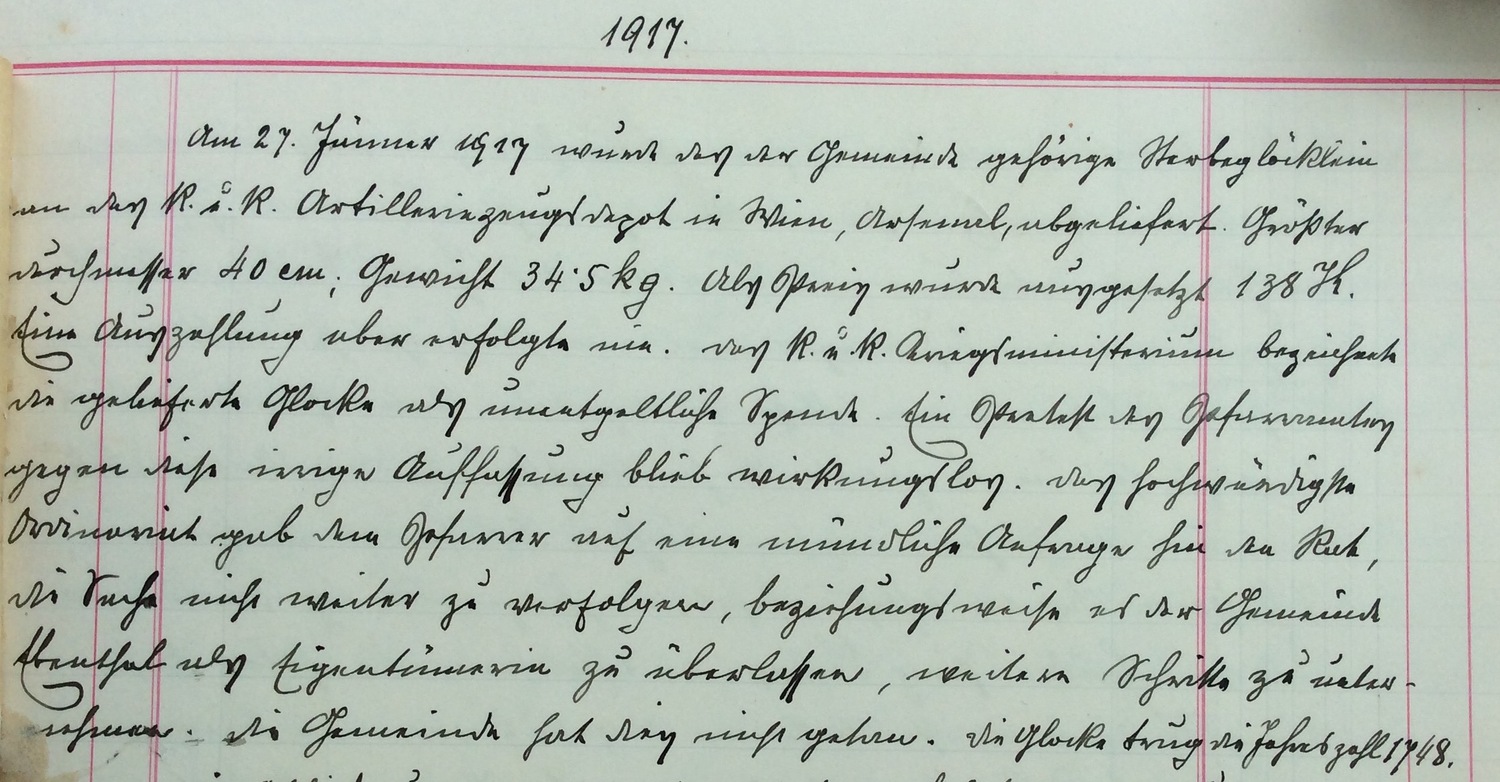 1917.
Am 27. Jänner 1917 wurde das der Gemeinde gehörige Sterbeglöcklein
an das k. u. k. Artilleriezeugsdepot in Wien, Arsenal, abgeliefert. Größter
Durchmesser 40 cm; Gewicht 34·5 kg. Als Preis wurde ausgesetzt 138 K.
Eine Auszahlung aber erfolgte nie. Das k. u. k. Kriegsministerium bezeichnete
die gelieferte Glocke als unentgeltliche Spende. Ein Protest des Pfarramtes
gegen diese irrige Auffassung blieb wirkungslos. Das hochwürdigste
Ordinariat gab dem Pfarrer auf eine mündliche Anfrage hin den Rat,
die Sache nicht weiter zu verfolgen, beziehungsweise es der Gemeinde
Ebenthal als Eigentümerin zu überlassen, weitere Schritte zu unter-
nehmen. Die Gemeinde hat dies nicht getan. Die Glocke trug die Jahreszahl 1748.